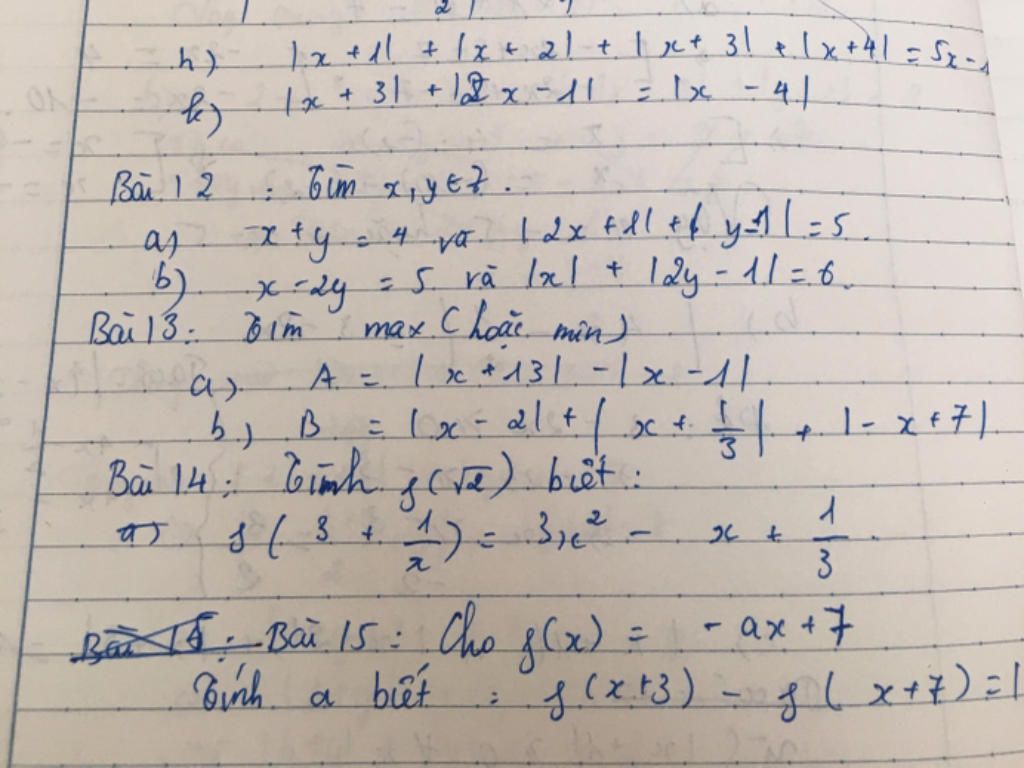 h) |x + 1| + |x + 2| + |x + 3| + |x + 4| = 5x - 1
k) |x + 3| + |2x - 1| = |x - 4|
Bài 12 : Tìm x, y ∈ Z.
a) x + y = 4 và |2x + 1| + |y - 1| = 5.
b) x - 2y = 5 và |x| + |2y - 1| = 6.
Bài 13 : Tìm max (hoặc min)
a) A = |x + 13| - |x - 1|
b) B = |x - 2| + |x + 1/3| + |- x + 7|
Bài 14 : Tính f(√2) biết :
a) f(3 + 1/x) = 3x² - x + 1/3.
Bài 15 : Cho f(x) = - ax + 7
Tính a biết : f(x+3) - f(x+7) = 1